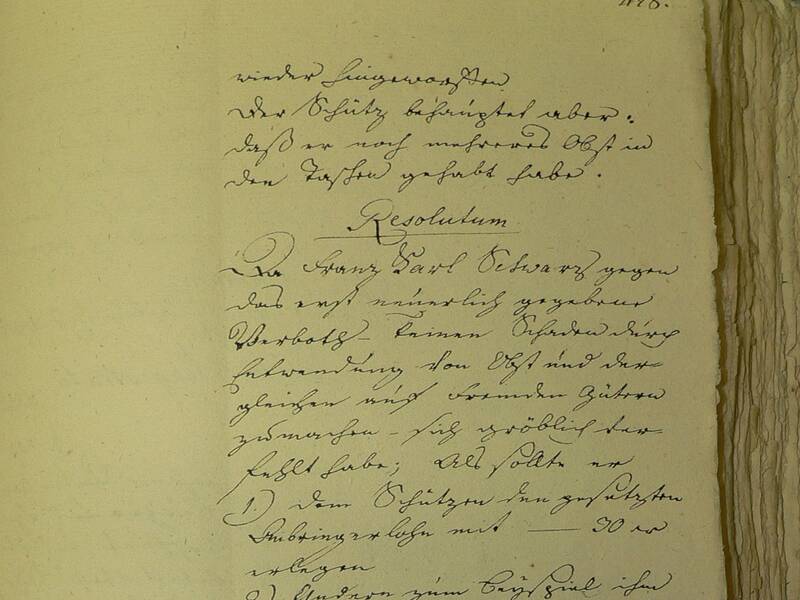 wieder hingeworffen
Der Schütz behauptet aber:
daß er noch mehreres Obst in
den Taschen gehabt habe.
Resolutum
Da Franz Karl Schwarz gegen
das erst neuerlich gegebene
Verboth – keinen Schaden durch
Entwendung von Obst und der-
gleichen auf fremden Gütern
zumachen – sich gröblich ver-
fehlt habe; Als sollte er
1.) dem Schützen den gesetzten
Anbringerlohn mit — 30 xr
erlegen
2) Andern zum Beyspiel ihm